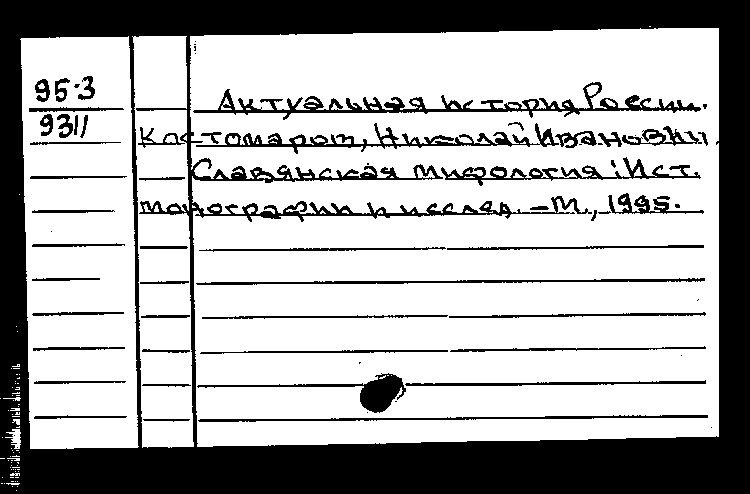 95-3
9311
Актуальная история России.
Костомаров, Николай Иванович.
Славянская мифология : Ист.
монографии и исслед. – М., 1995.